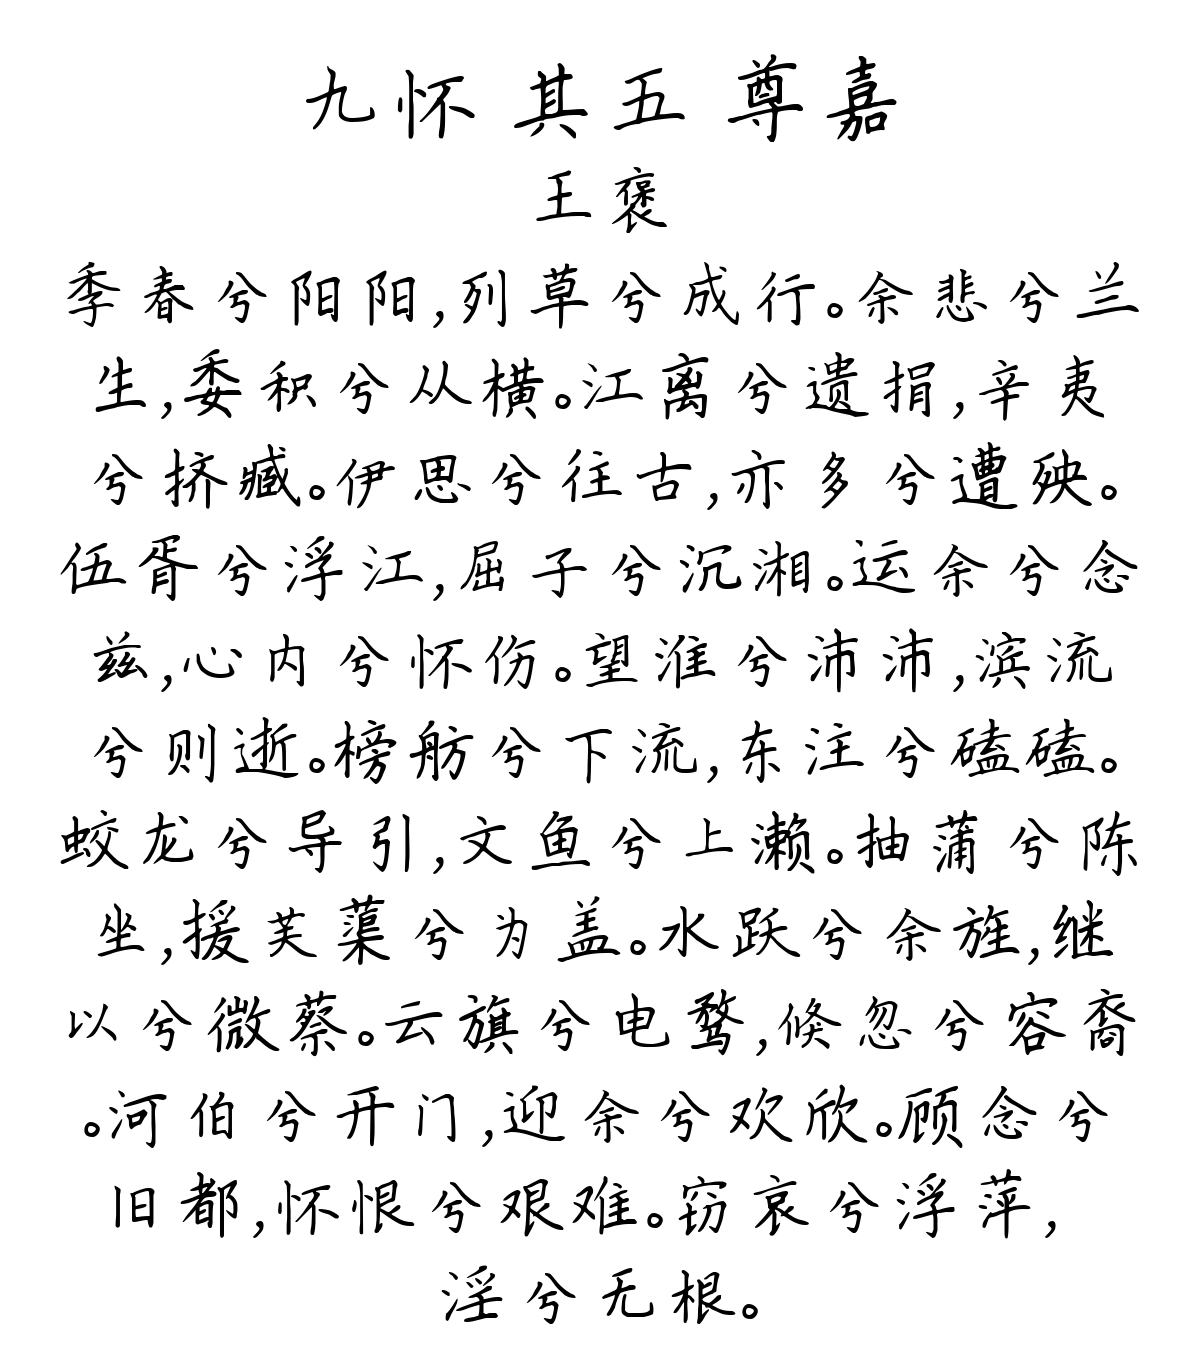 九怀 其五 尊嘉
王褒
季春兮阳阳,列草兮成行。余悲兮兰
生,委积兮从横。江离兮遗捐,辛夷
兮挤臧。伊思兮往古,亦多兮遭殃。
伍胥兮浮江,屈子兮沉湘。运余兮念
兹,心内兮怀伤。望淮兮沛沛,滨流
兮则逝。榜舫兮下流,东注兮磕磕。
蛟龙兮导引,文鱼兮上濑。抽蒲兮陈
坐,援芙蕖兮为盖。水跃兮余旌,继
以兮微蔡。云旗兮电鹜,倏忽兮容裔
。河伯兮开门,迎余兮欢欣。顾念兮
旧都,怀恨兮艰难。窃哀兮浮萍,
淫兮无根。